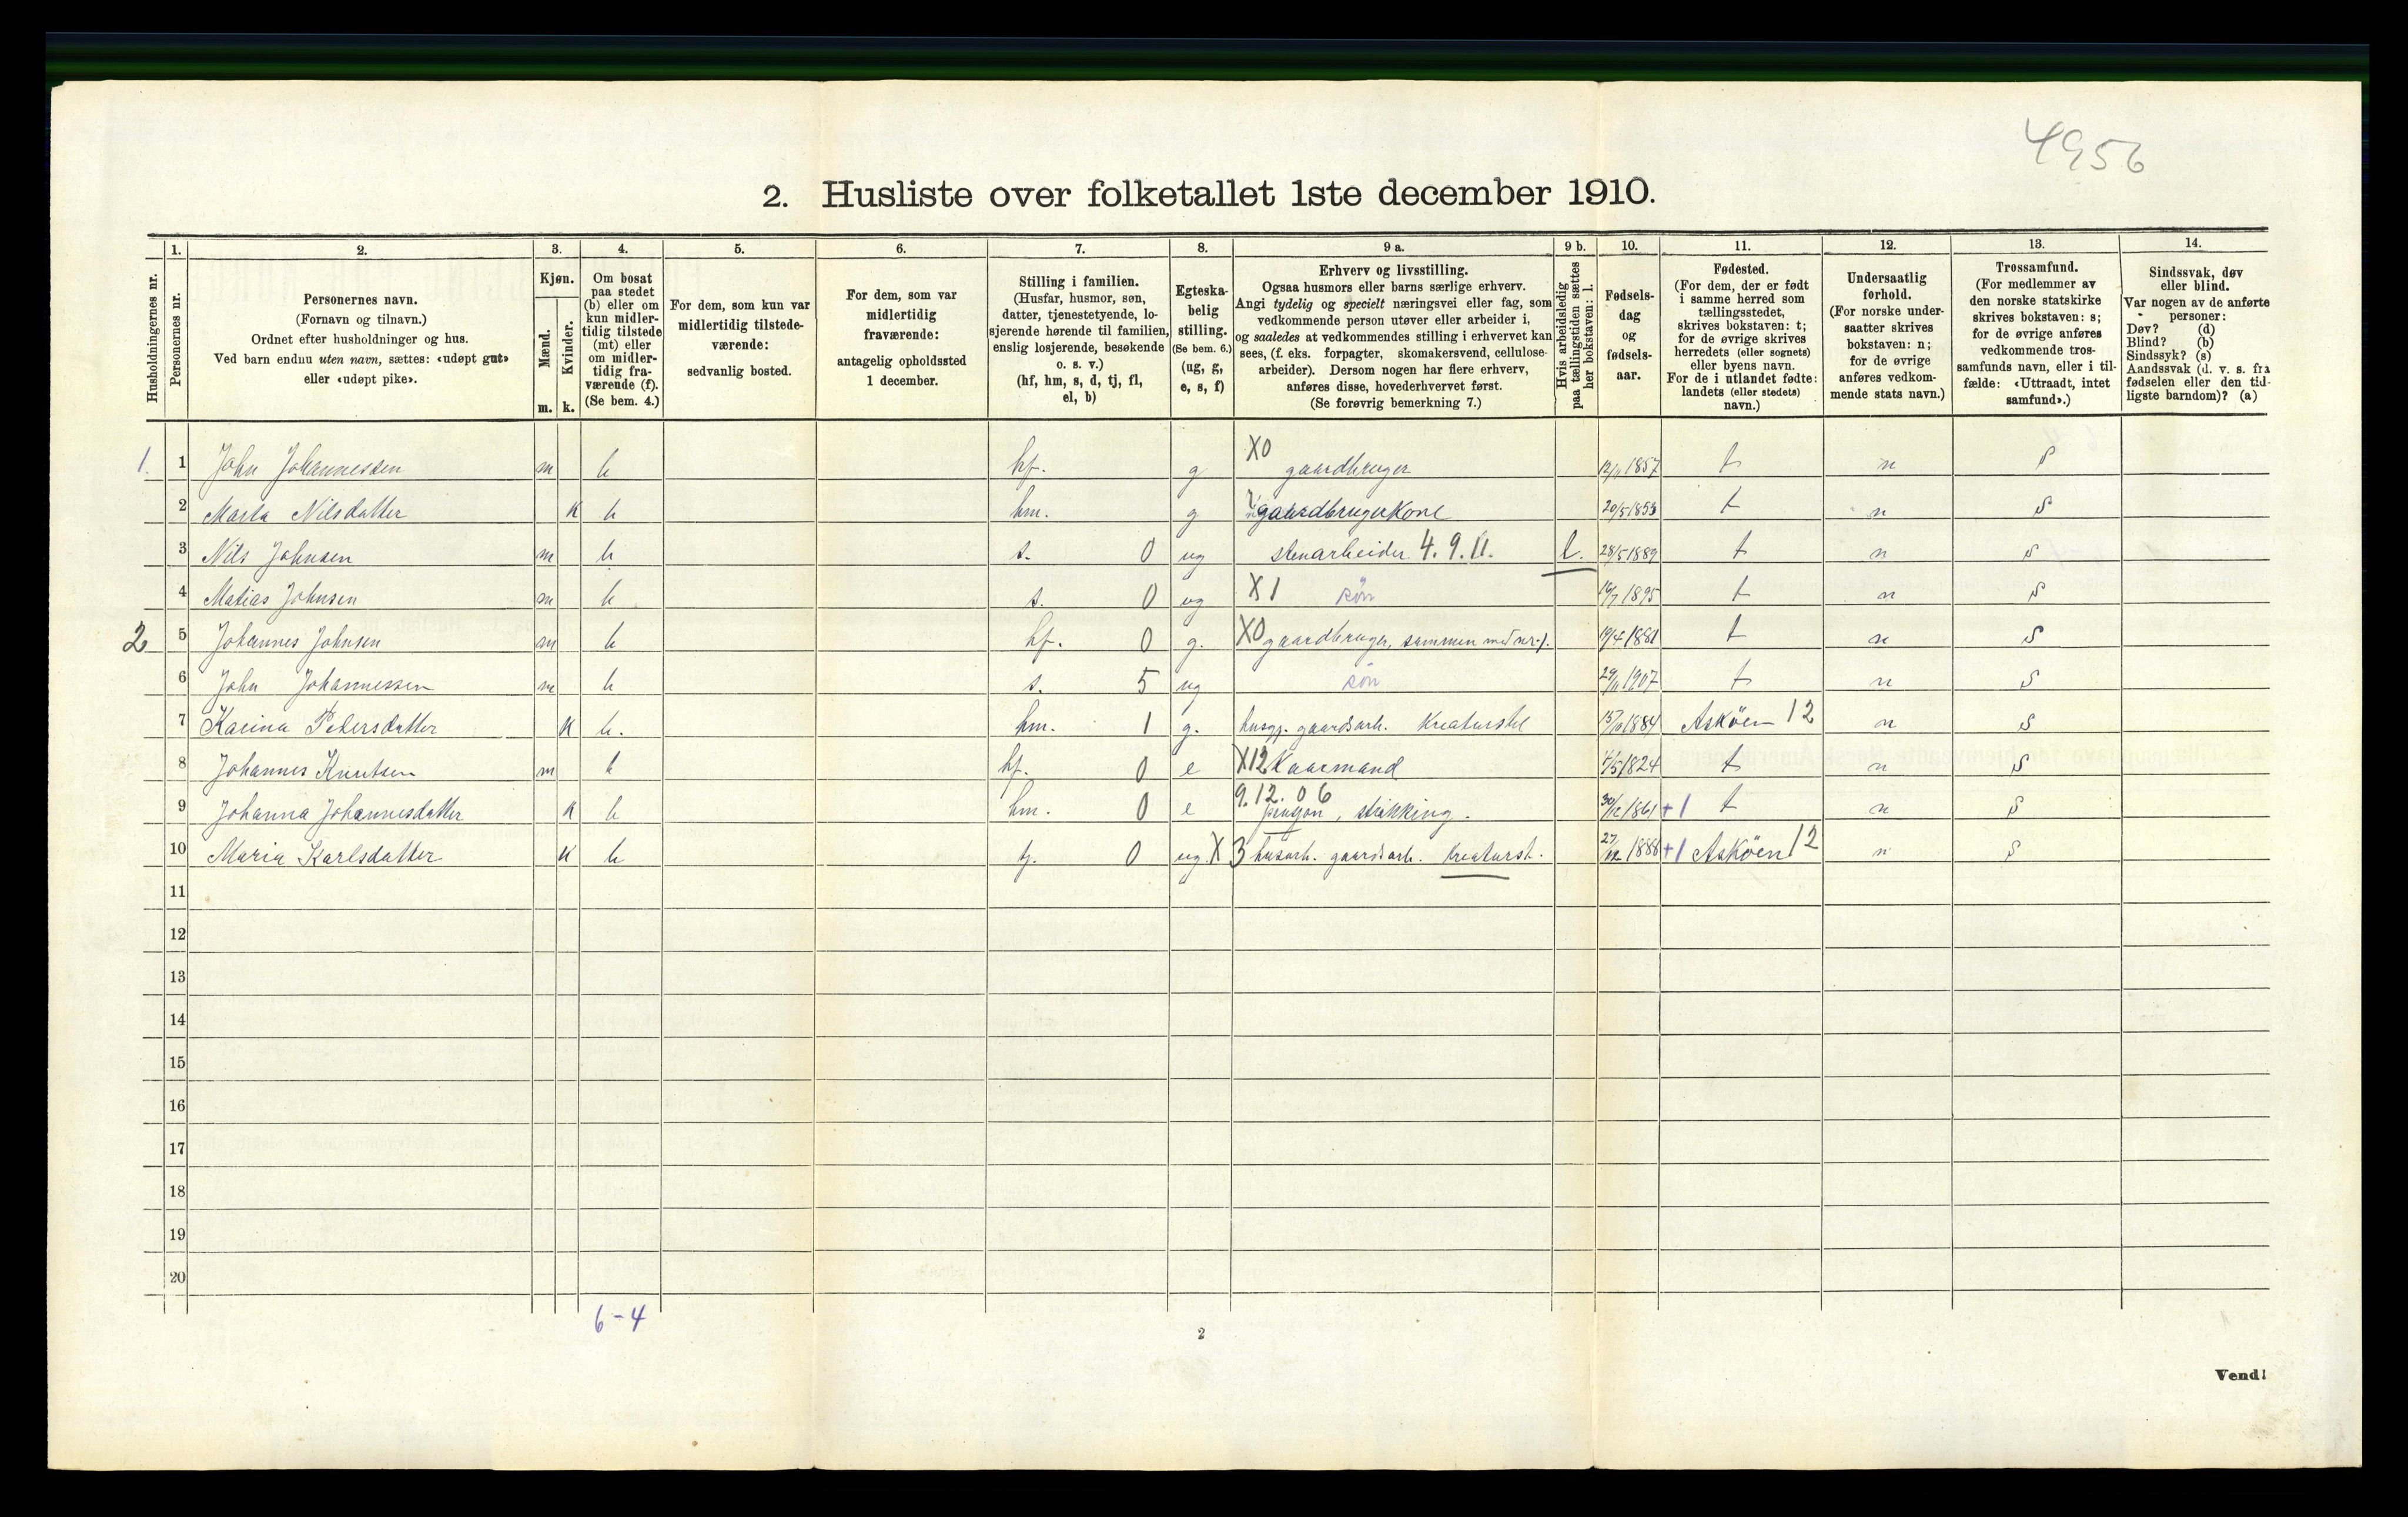 4956
2. Husliste over folketallet 1ste december 1910.
Husholdningernes nr.
1.
Personernes nr.
2.
Personernes navn.
(Fornavn og tilnavn.)
Ordnet efter husholdninger og hus.
Ved barn endnu uten navn, sættes: «udøpt gut»
eller «udøpt pike».
3.
Kjøn.
Mænd.
Kvinder.
m. k.
4.
Om bosat
paa stedet
(b) eller om
kun midler-
tidig tilstede
(mt) eller
om midler-
tidig fra-
værende (f).
(Se bem. 4.)
5.
For dem, som kun var
midlertidig tilstede-
værende:
sedvanlig bosted.
6.
For dem, som var
midlertidig
fraværende:
antagelig opholdssted
1 december.
7.
Stilling i familien.
(Husfar, husmor, søn,
datter, tjenestetyende, lo-
sjerende hørende til familien,
enslig losjerende, besøkende
o. s. v.)
(hf, hm, s, d, tj, fl,
el, b)
8.
Egteska-
belig
stilling.
(Se bem. 6.)
(ug, g,
e, s, f)
9 a.
Erhverv og livsstilling.
Ogsaa husmors eller barns særlige erhverv.
Angi tydelig og specielt næringsvei eller fag, som
vedkommende person utøver eller arbeider i,
og saaledes at vedkommendes stilling i erhvervet kan
sees, (f. eks. forpagter, skomakersvend, cellulose-
arbeider). Dersom nogen har flere erhverv,
anføres disse, hovederhvervet først.
(Se forøvrig bemerkning 7.)
9 b.
Hvis arbeidsledig
paa tællingstiden sættes
her bokstaven: l.
10.
Fødsels-
dag
og
fødsels-
aar.
11.
Fødested.
(For dem, der er født
i samme herred som
tællingsstedet,
skrives bokstaven: t;
for de øvrige skrives
herredets (eller sognets)
eller byens navn.
For de i utlandet fødte:
landets (eller stedets)
navn.)
12.
Undersaatlig
forhold.
(For norske under-
saatter skrives
bokstaven: n;
for de øvrige
anføres vedkom-
mende stats navn.)
13.
Trossamfund.
(For medlemmer av
den norske statskirke
skrives bokstaven: s;
for de øvrige anføres
vedkommende tros-
samfunds navn, eller i til-
fælde: «Uttraadt, intet
samfund».)
14.
Sindssvak, døv
eller blind.
Var nogen av de anførte
personer:
Døv? (d)
Blind? (b)
Sindssyk? (s)
Aandssvak (d. v. s. fra
fødselen eller den tid-
ligste barndom)? (a)
1. 1 John Johannessen m b hf. g X0 gaardbruger 1857 t n S
2 Marta Nilsdatter k b hm. g gaardbrugerkone 20/5 1853 t n S
3 Nils Johnsen m b s. 0 ug stenarbeider 4.9.11. l. 28/5 1889 t n S
4 Matias Johnsen m b s. 0 ug X 1 søn 1895 t n S
2 5 Johannes Johnsen m b hf. 0 g. X0 gaardbruger, sammen med nr 1. 19/4 1881 t n S
6 John Johannessen m b s. 5 ug søn 29/11 1907 t n S
7 Karina Petersdatter k b. hm. 1 g. husgj. gaardsarb. Kreaturstel 1884 Askøen 12 n S
8 Johannes Knutsen m b hf. 0 e X12 Kaarmand 1824 t n S
9 Johanna Johannesdatter k b hm. 0 e 9.12.06 pensjon, strikking. 30/12 1861 +1 t n S
10 Maria Karlsdatter k b tj. 0 ug. X 3 husarb. gaardsarb. Kreaturst. 1888 +1 Askøen 12 n S
11
12
13
14
15
16
17
18
19
20
6-4
2
Vend!